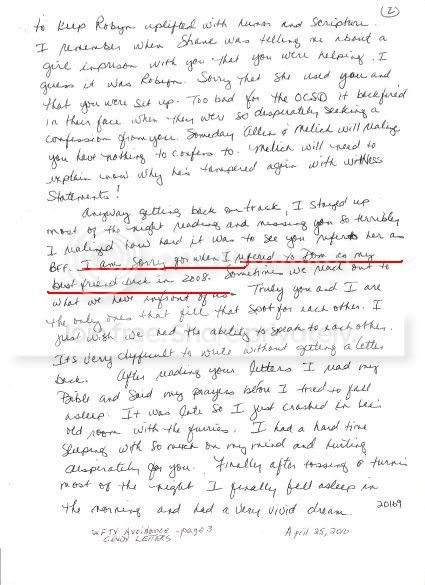 (2)
to keep Robyn uplifted with humor and Scripture.
I remember when Shane was telling me about a
girl inprison with you that you were helping. I
guess it was Robyn. Sorry that she used you and
that you were set up. Too bad for the OCSD it backfired
in their face when they were so desperately seeking a
confession from you. Someday Allen & Melich will realize
you have nothing to confess to. Melich will need to
explain now why he's tampered again with witness
Statements!
Anyway getting back on track, I stayed up
most of the night reading and missing you so terribly
I realized how hard it was to see you refer to her as
BFF. I am sorry for when I refered to Dom as my
best friend back in 2008. Sometimes we reach out to
what we have infront of us. Truly you and I are
the only ones that fill that spot for each other. I
just wish we had the ability to speak to each other.
Its very difficult to write without getting a letter
back. After reading your letters I read my
Bible and said my prayers before I tried to fall
asleep. It was late so I just crashed in Lee's
old room with the furries. I had a hard time
sleeping with so much on my mind and hurting
desperately for you. Finally after tossing & turning
most of the night I finally fell asleep in
the morning and had a very vivid dream.
20169
WFTV Avoidance - page 3
CINDY LETTERS
April 25, 2010